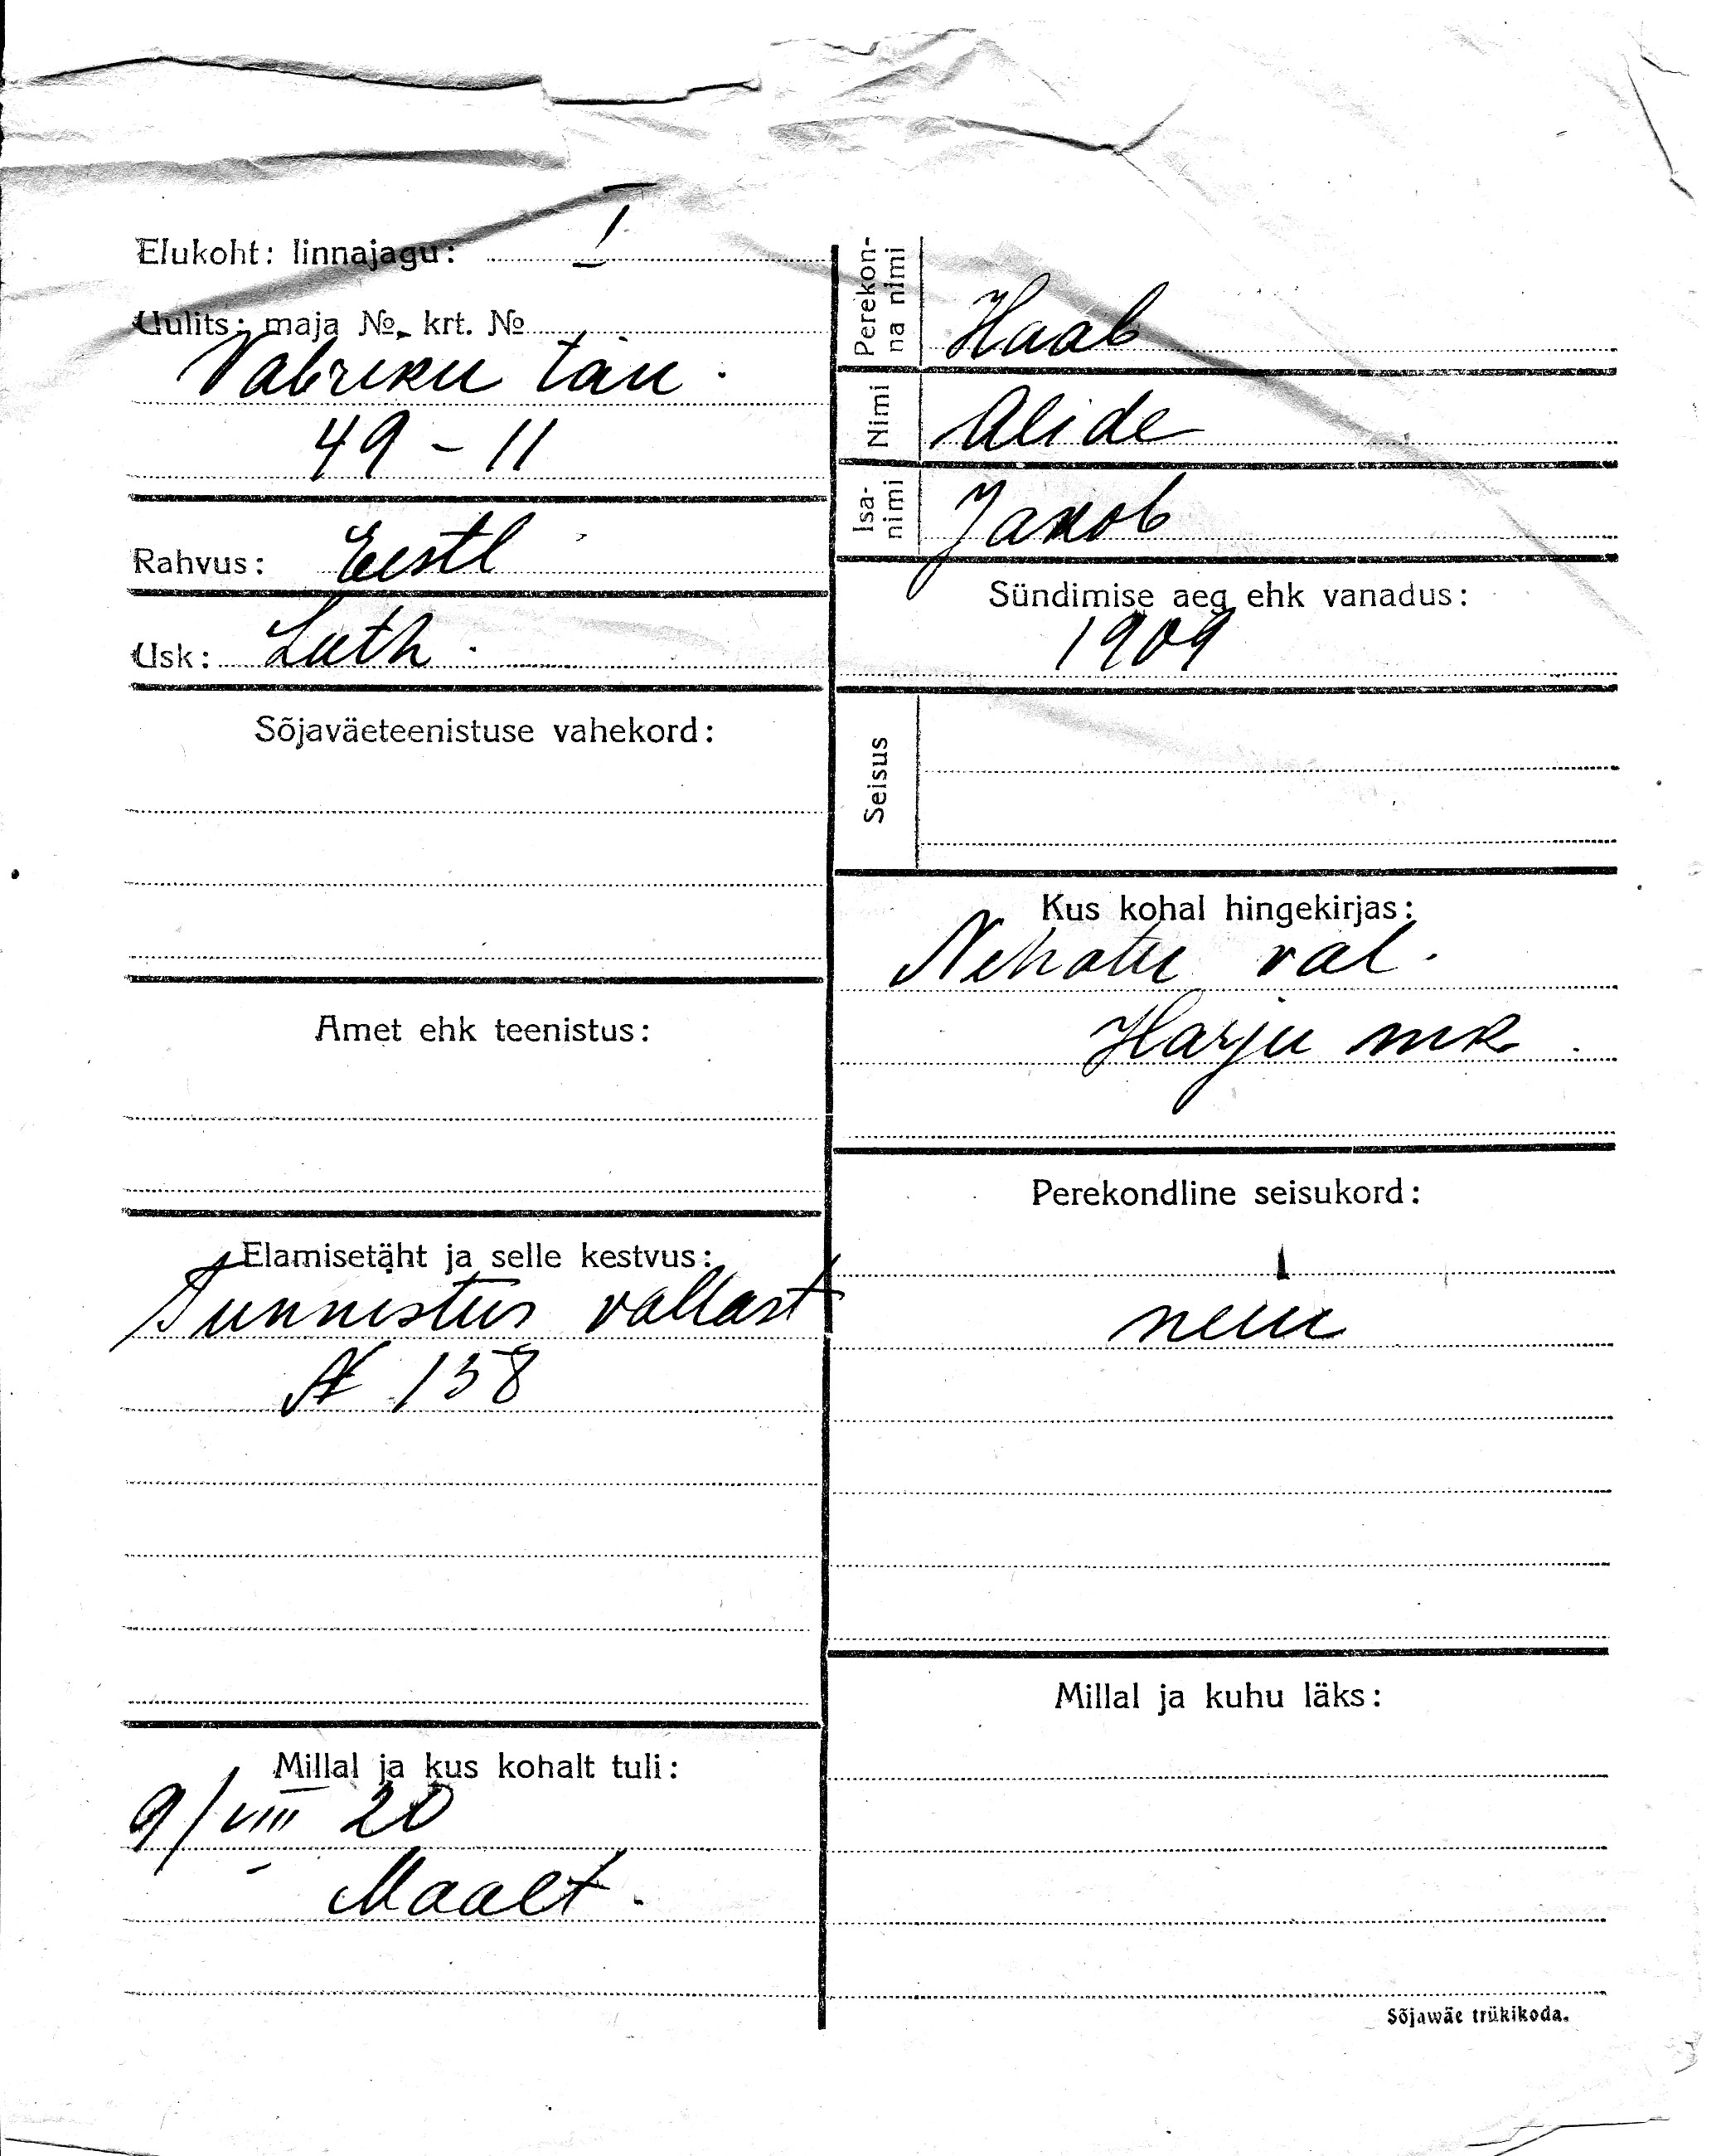 Elukoht: linnajagu: I
Uulits: maja №, krt. №
Vabriku tän.
49 - 11
Rahvus: Eestl
Usk: Luth.
Sõjaväeteenistuse vahekord:
Amet ehk teenistus:
Elamisetäht ja selle kestvus:
Tunnistus vallast
№ 158
Millal ja kus kohalt tuli:
9/VIII 20
Maalt.
Perekon-
na nimi
Haab
Nimi Alide
Isa-
nimi
Jakob
Sündimise aeg ehk vanadus:
1909
Seisus
Kus kohal hingekirjas:
Nehatu val.
Harju mk.
Perekondline seisukord:
neiu
Millal ja kuhu läks:
Sõjawäe trükikoda.